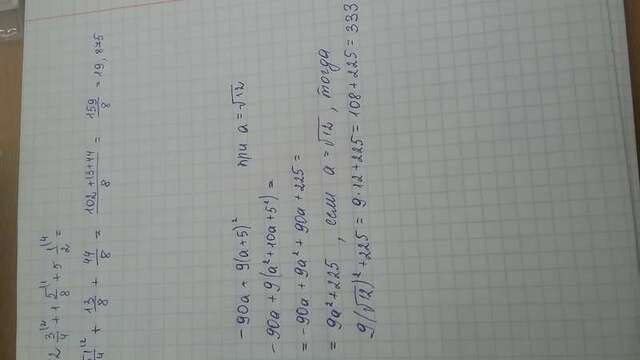 2 3/4 + 1 5/8 + 5 1/2 =
/4 + 13/8 + 44/8 = 102+13+44/8 = 159/8 = 19,875
-90a + 9(a+5)² при a=√12
-90a+9(a²+10a+5²)=
= -90a+9a²+90a+225=
= 9a²+225, если a=√12, тогда
9(√12)²+225=9·12+225=108+225=333